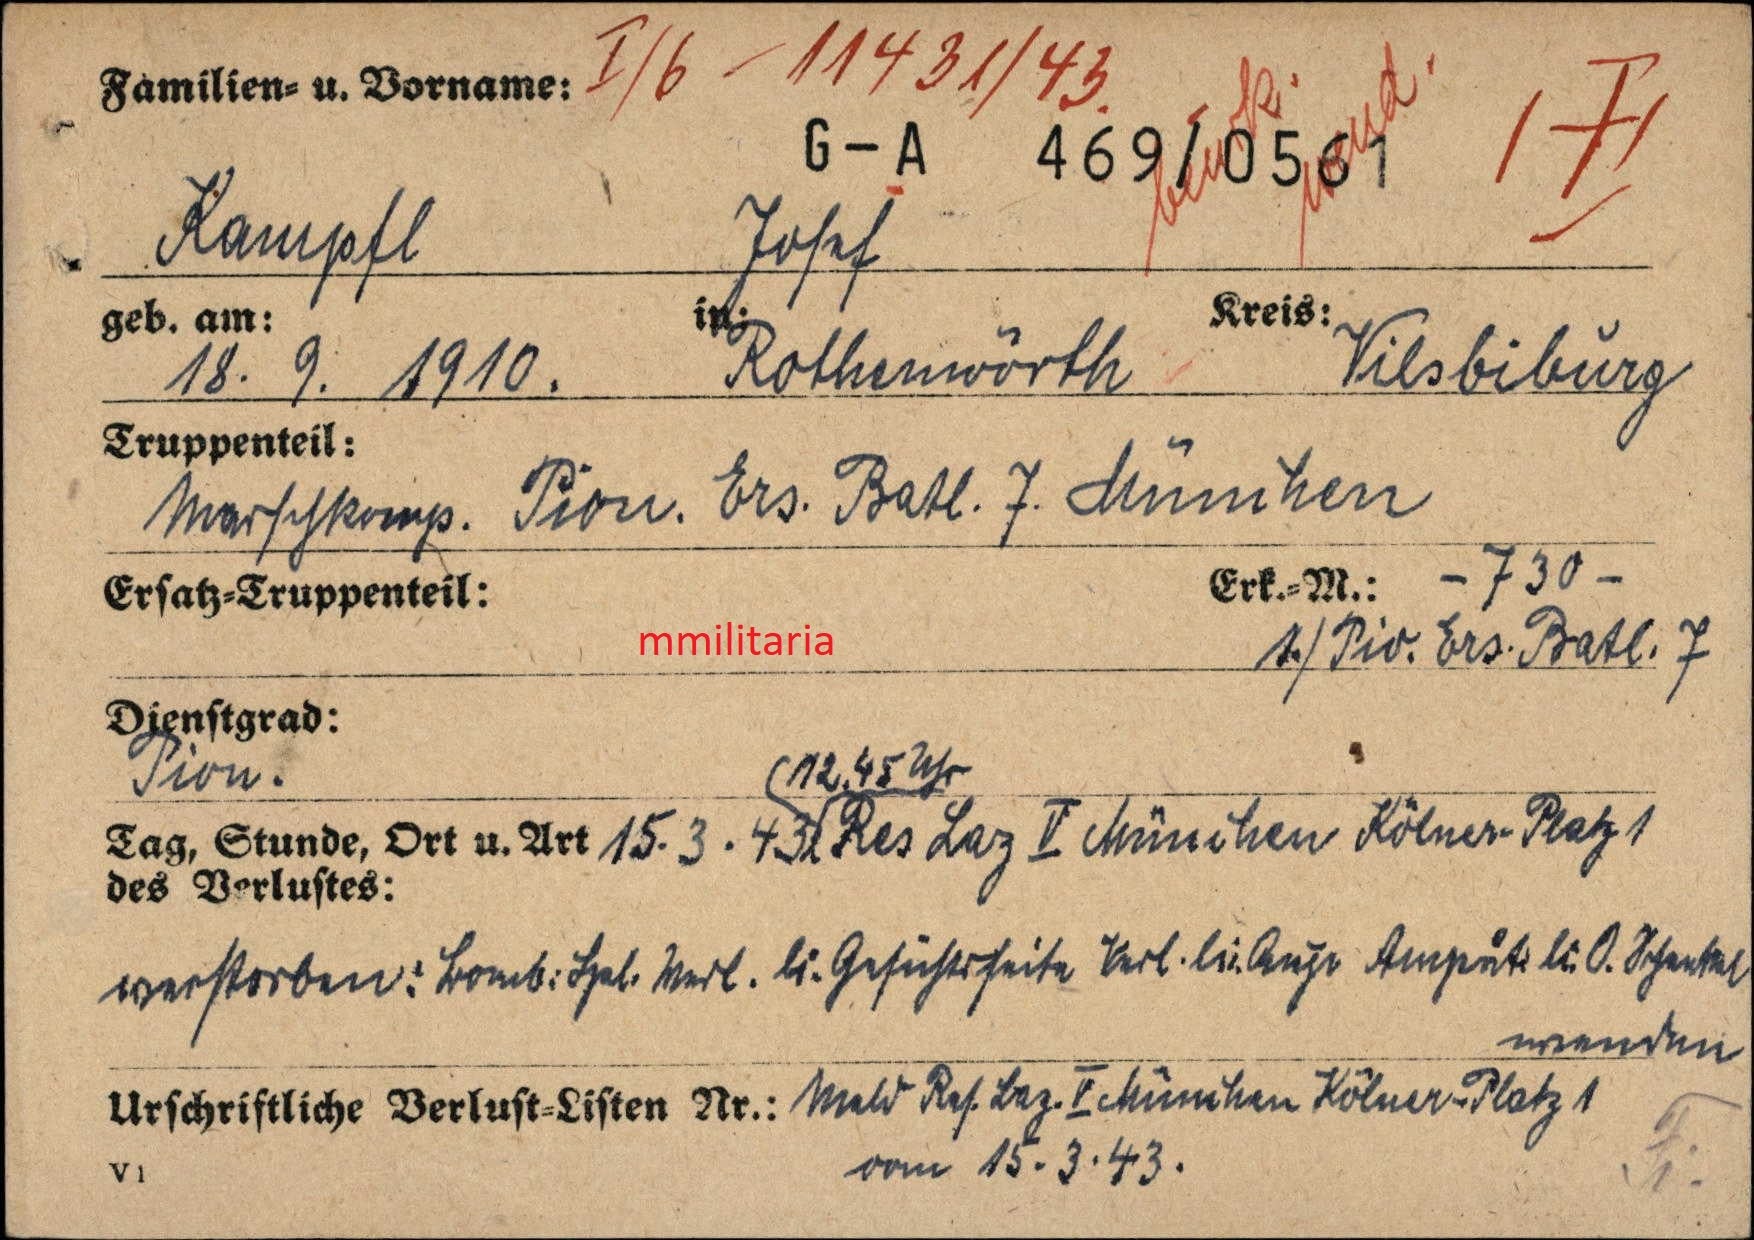 Familien- u. Vorname: I/6 - 11431/43.
G-A 469/0561
Kampfl Josef
geb. am: in: Kreis:
18. 9. 1910. Rothenwörth Vilsbiburg
Truppenteil:
Marschkomp. Pion. Ers. Batl. 7. München
Ersatz-Truppenteil: Erk.-M.: -730-
mmilitaria
1./Pio. Ers. Batl. 7
Dienstgrad:
Pion.
12.45 Uhr
Tag, Stunde, Ort u. Art 15.3.43 Res Laz V München Kölner-Platz 1
des Verlustes:
verstorben: Bomb: Spl. Verl. li. Gesichtsseite Verl. li. Auge Amput. li. O. Schenkel
Urschriftliche Verlust-Listen Nr.: Meld Res. Laz. V München Kölner-Platz 1
vom 15.3.43.
V 1